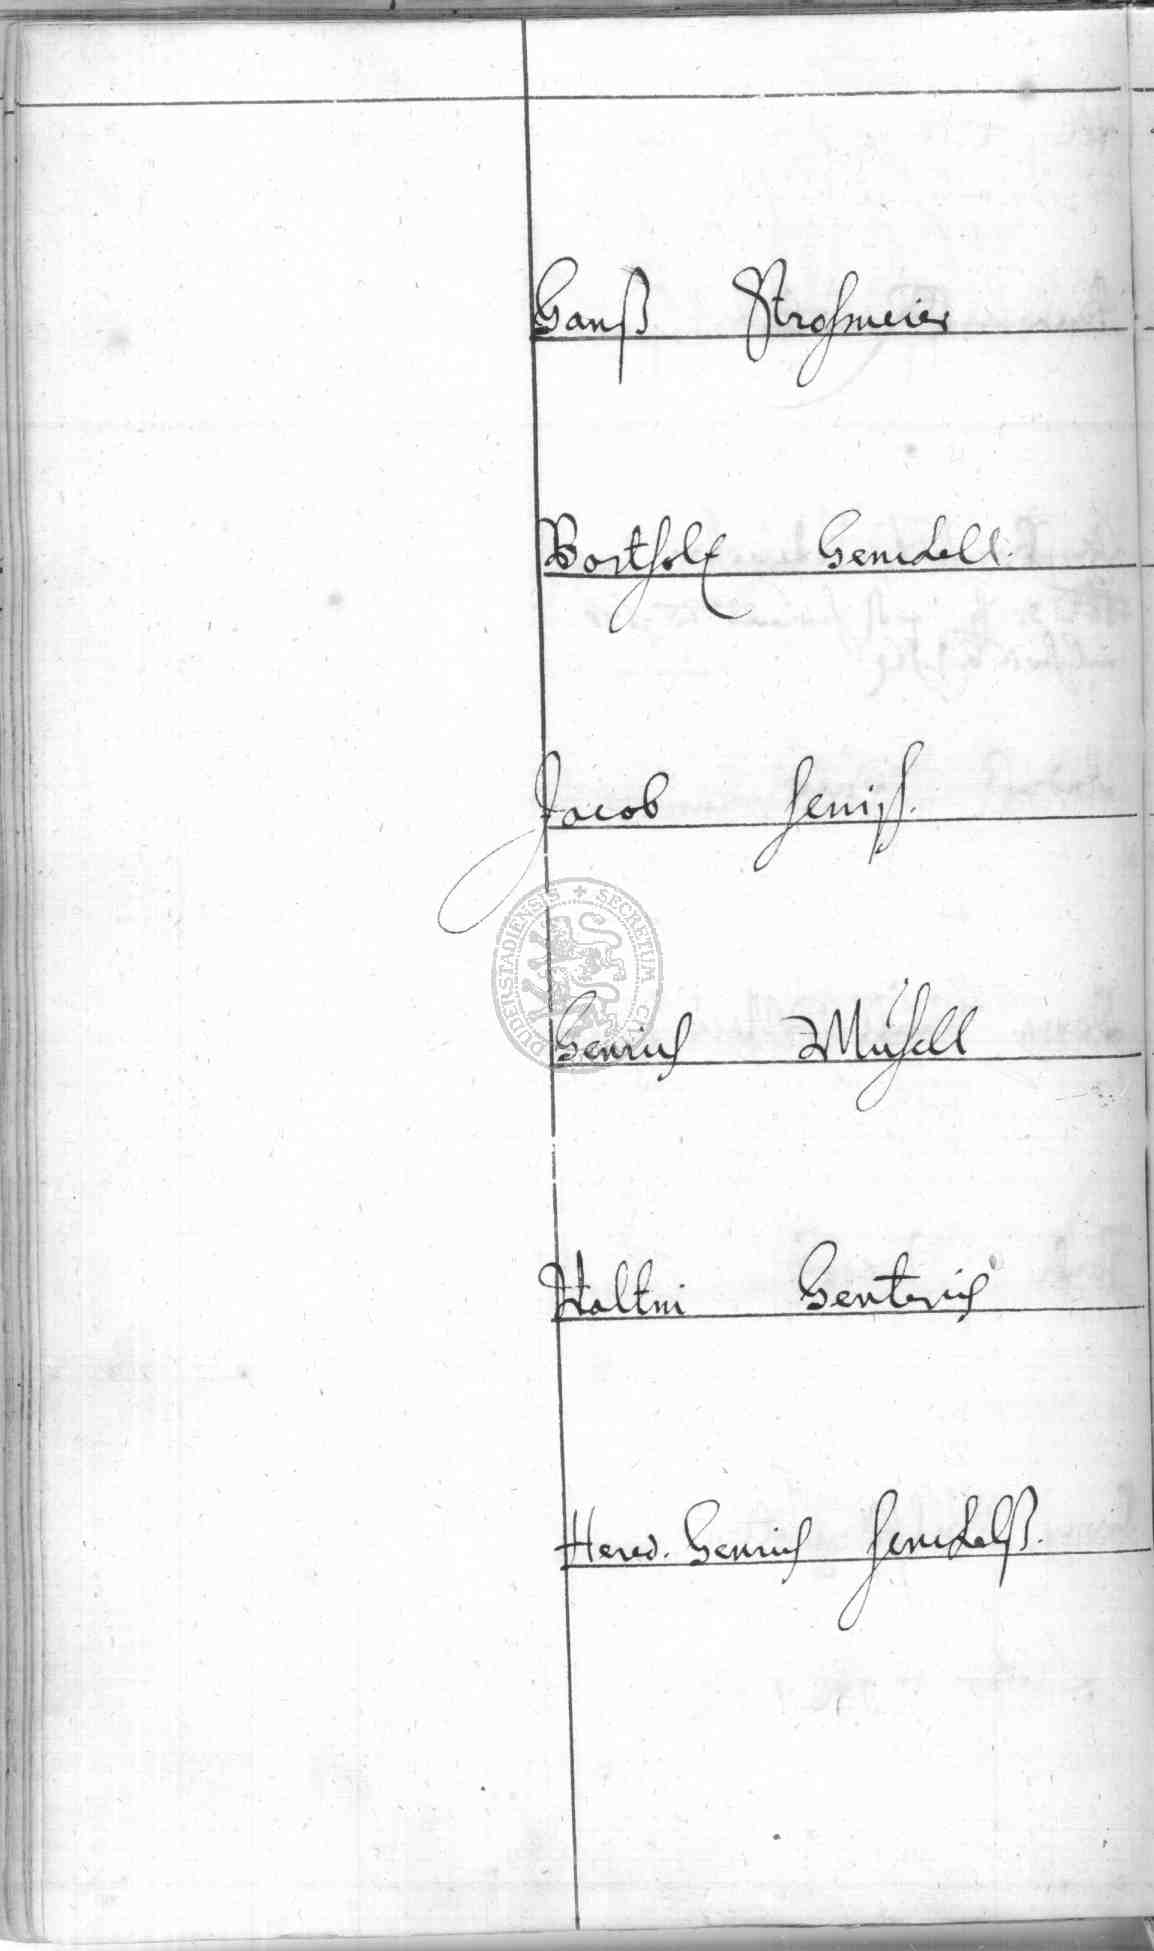 Hanß Strohmeier
Barthold Henckell.
Jacob
Henrich Mühell
Valtin Hentrich
Hered. Henrich Henckelß.
DUDERSTADIENSIS + SECRETUM